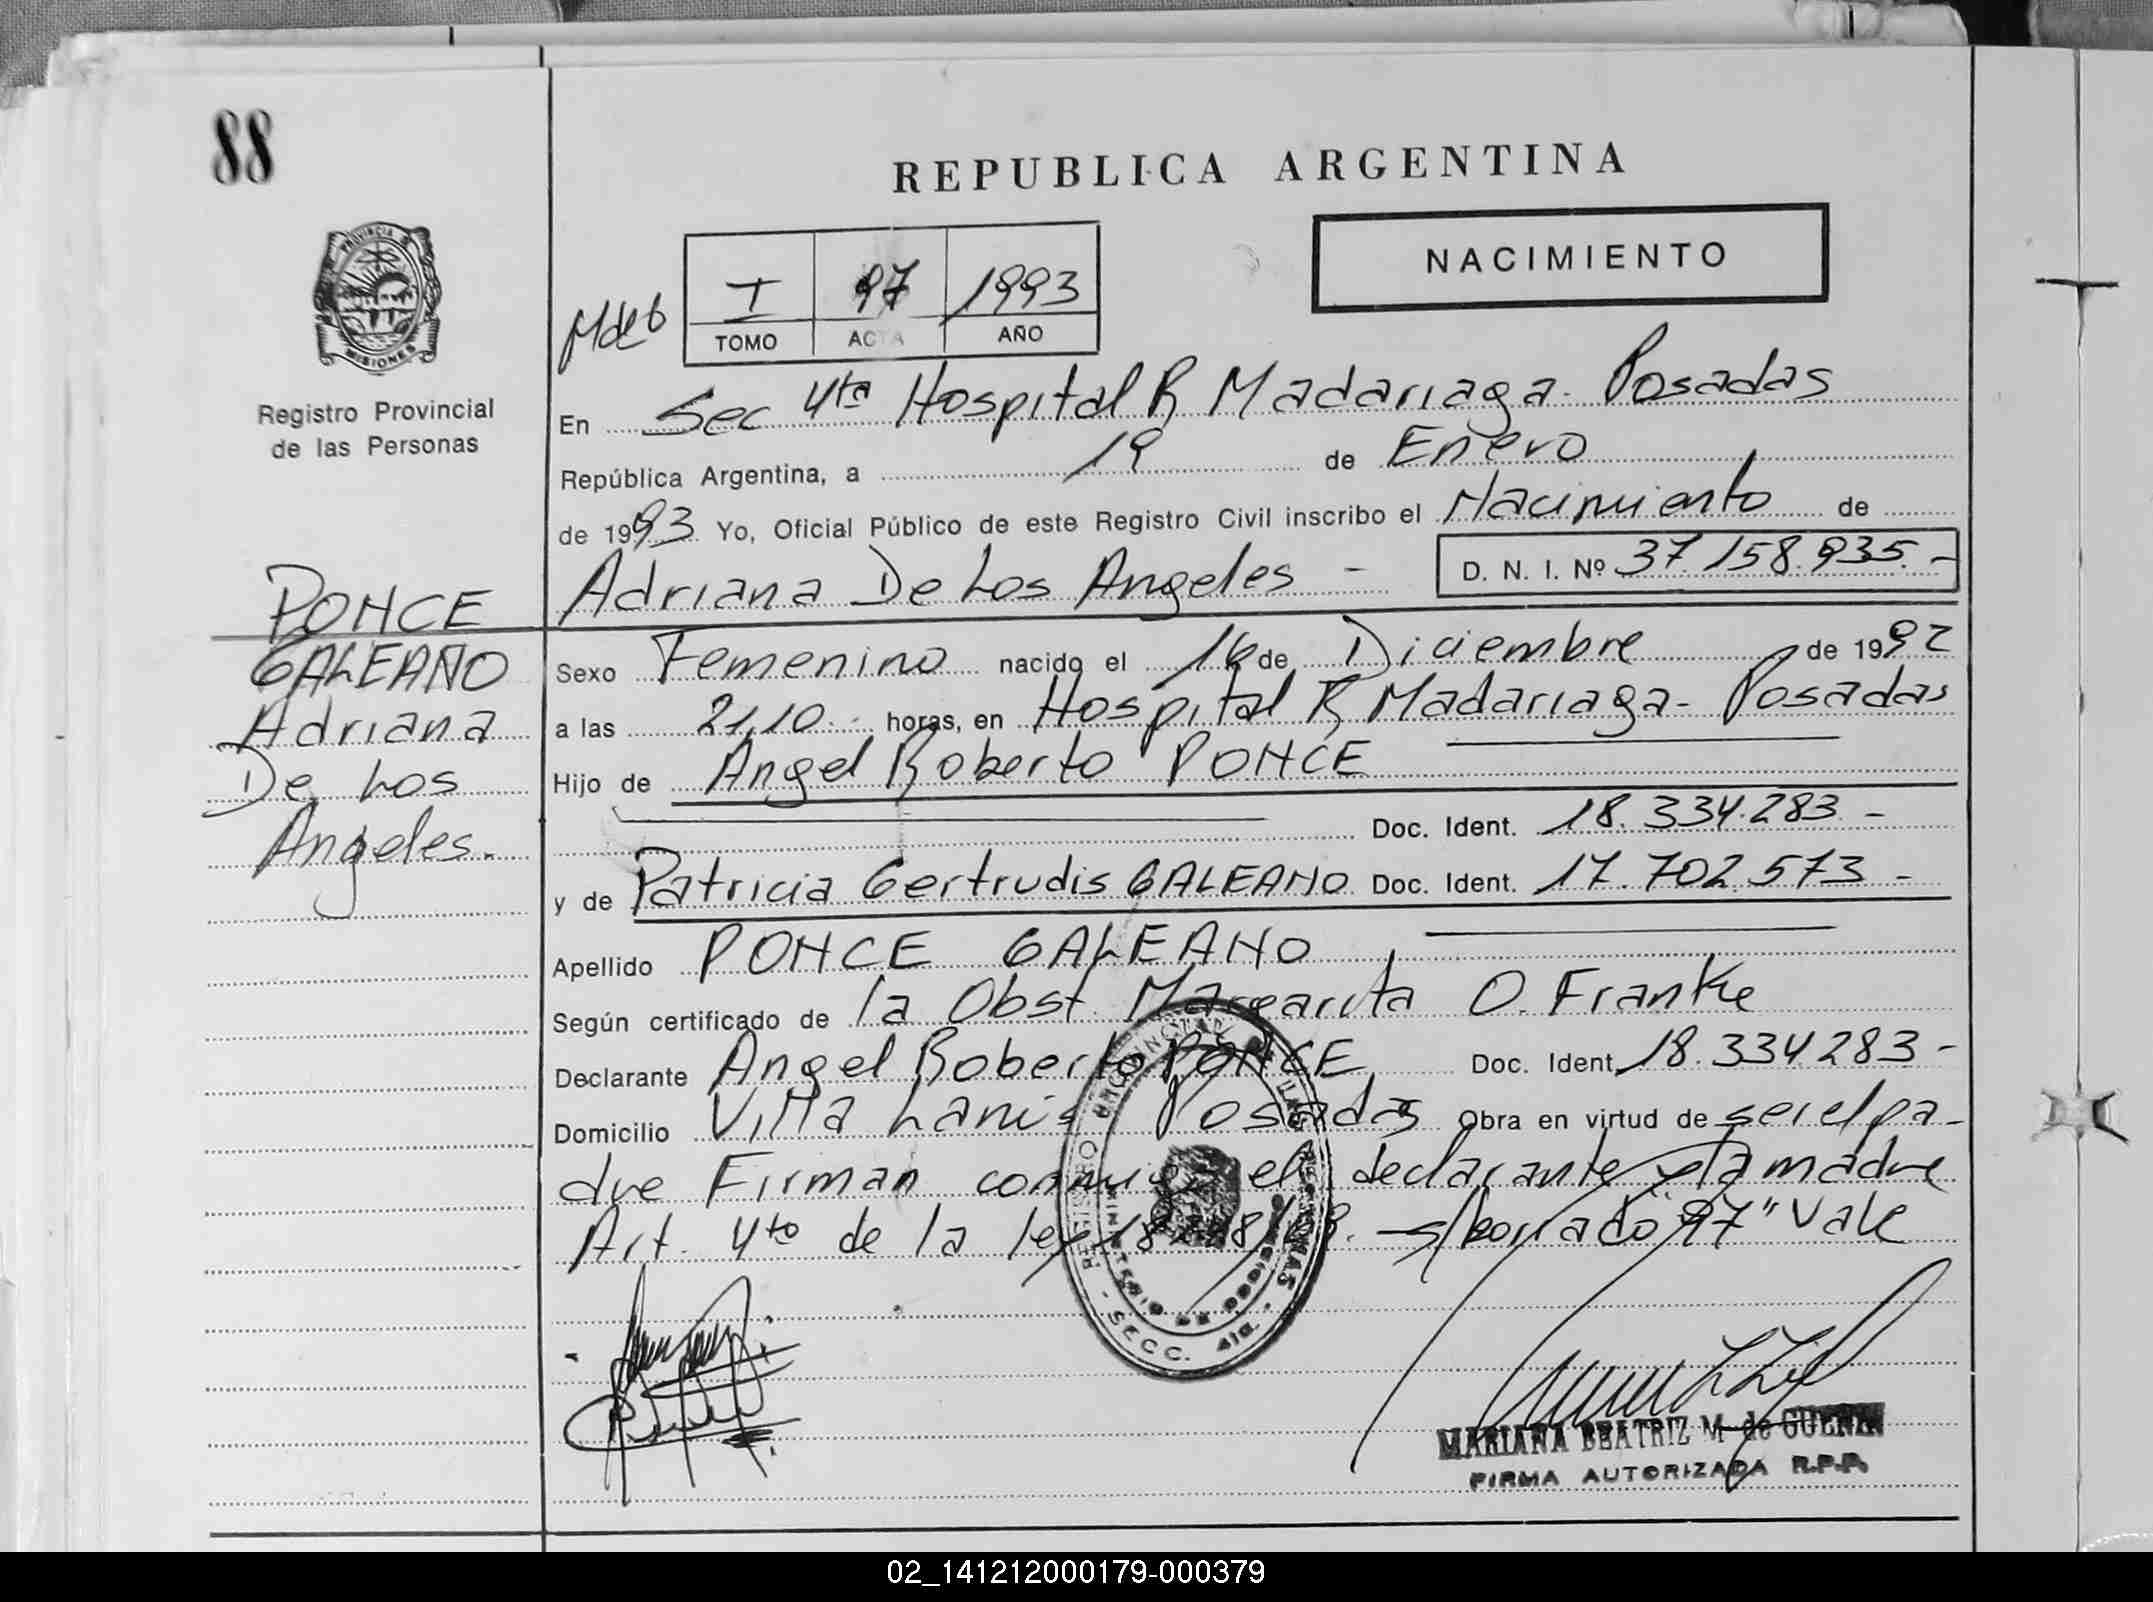 88
REPUBLICA ARGENTINA
NACIMIENTO
Mdeb
I 97 1993
TOMO ACTA AÑO
PROVINCIA DE MISIONES
Registro Provincial
de las Personas
En Sec 4ta Hospital R Madariaga - Posadas
República Argentina, a 19 de Enero
de 1993 Yo, Oficial Público de este Registro Civil inscribo el Nacimiento de
Adriana De Los Angeles - D. N. I. Nº 37.158.935.-
PONCE
GALEANO
Adriana
De Los
Angeles.
Sexo Femenino nacido el 16 de Diciembre de 1992
a las 21,10.- horas, en Hospital R Madariaga - Posadas
Hijo de Angel Roberto PONCE
Doc. Ident. 18.334.283 -
y de Patricia Gertrudis GALEANO Doc. Ident. 17.702.573 -
Apellido PONCE GALEANO
Según certificado de la Obst. Margarita O. Franke
Declarante Angel Roberto PONCE Doc. Ident. 18.334.283 -
Domicilio Villa Lanús Posadas Obra en virtud de ser el pa-
dre Firman conmigo el declarante y la madre
Art. 4to de la ley 18.248/69. - s/borrado "97" Vale
REGISTRO PROVINCIAL DE LAS PERSONAS
MINISTERIO DE GOBIERNO
- SECC. 4ta. -
MARIANA BEATRIZ M. de
FIRMA AUTORIZADA R.P.P.
02_141212000179-000379